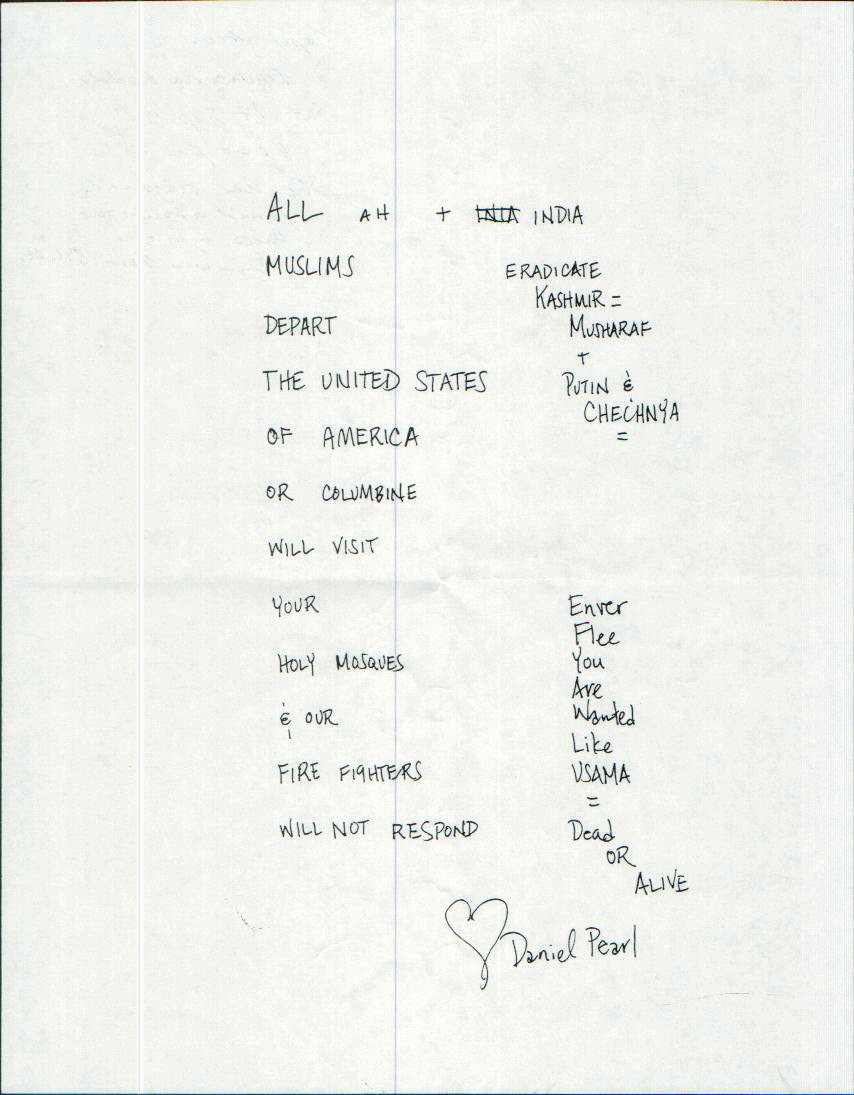 ALL AH + INIA INDIA
MUSLIMS
DEPART
THE UNITED STATES
OF AMERICA
OR COLUMBINE
WILL VISIT
YOUR
HOLY MOSQUES
& OUR
FIRE FIGHTERS
WILL NOT RESPOND
ERADICATE
KASHMIR =
MUSHARAF
+
PUTIN &
CHECHNYA
=
Enver
Flee
You
Are
Wanted
Like
USAMA
=
Dead
OR
ALIVE
Daniel Pearl